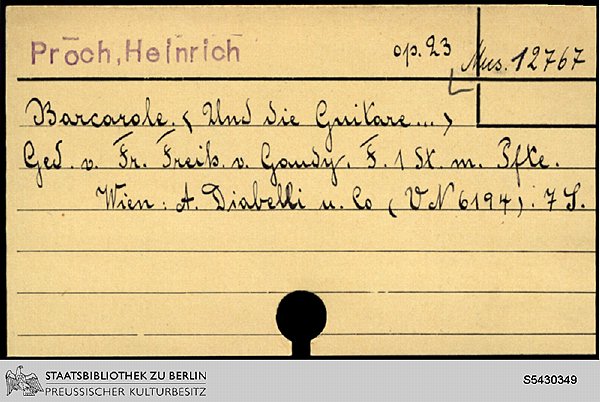 Proch, Heinrich
op. 23
Mus. 12767
Barcarole. < Und die Guitare ... >
Ged. v. Fr. Freih. v. Gaudy. F. 1 St. m. Pfte.
Wien: A. Diabelli u. Co (VN 6194). 7 S.
STAATSBIBLIOTHEK ZU BERLIN
PREUSSISCHER KULTURBESITZ
S5430349